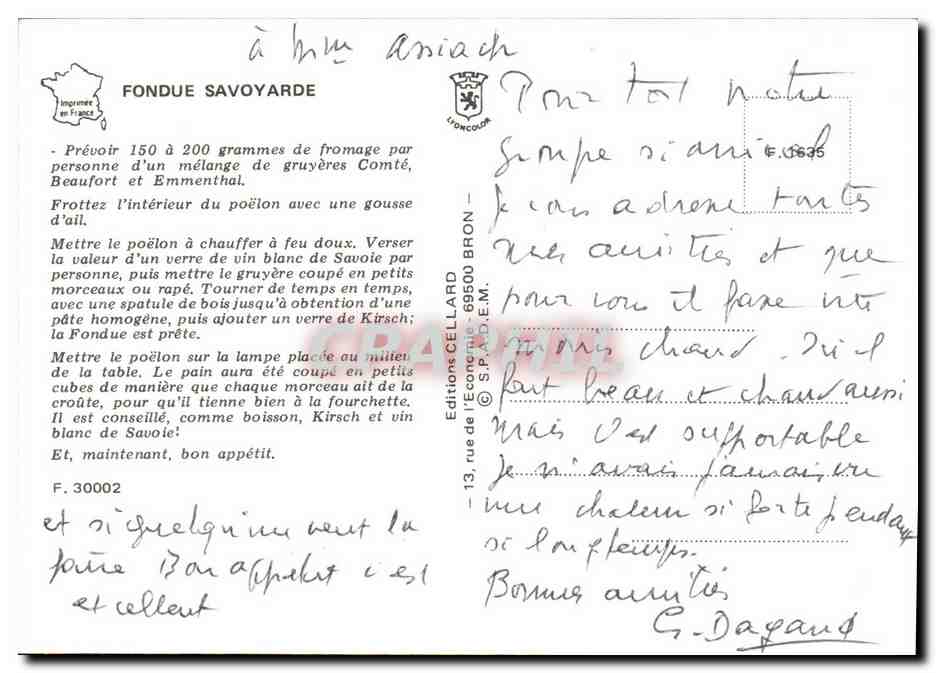 à Mme Assiach
Imprimée
en France
FONDUE SAVOYARDE
- Prévoir 150 à 200 grammes de fromage par
personne d'un mélange de gruyères Comté,
Beaufort et Emmenthal.
Frottez l'intérieur du poëlon avec une gousse
d'ail.
Mettre le poëlon à chauffer à feu doux. Verser
la valeur d'un verre de vin blanc de Savoie par
personne, puis mettre le gruyère coupé en petits
morceaux ou rapé. Tourner de temps en temps,
avec une spatule de bois jusqu'à obtention d'une
pâte homogène, puis ajouter un verre de Kirsch;
la Fondue est prête.
Mettre le poëlon sur la lampe placée au milieu
de la table. Le pain aura été coupé en petits
cubes de manière que chaque morceau ait de la
croûte, pour qu'il tienne bien à la fourchette.
Il est conseillé, comme boisson, Kirsch et vin
blanc de Savoie!
Et, maintenant, bon appétit.
F. 30002
et si quelqu'un veut la
faire Bon appétit c'est
excellent
LYONCOLOR
Editions CELLARD
- 13, rue de l'Economie - 69500 BRON -
© S.P.A.D.E.M.
F. 1635
Pour tout notre
groupe si amical
je vous adresse toutes
mes amitiés et que
pour vous il fasse vite
moins chaud. Ici il
fait beau et chaud aussi
mais c'est supportable
Je n'avais jamais vu
une chaleur si forte pendant
si longtemps.
Bonnes amitiés
G. Dagand
CPAPHIL